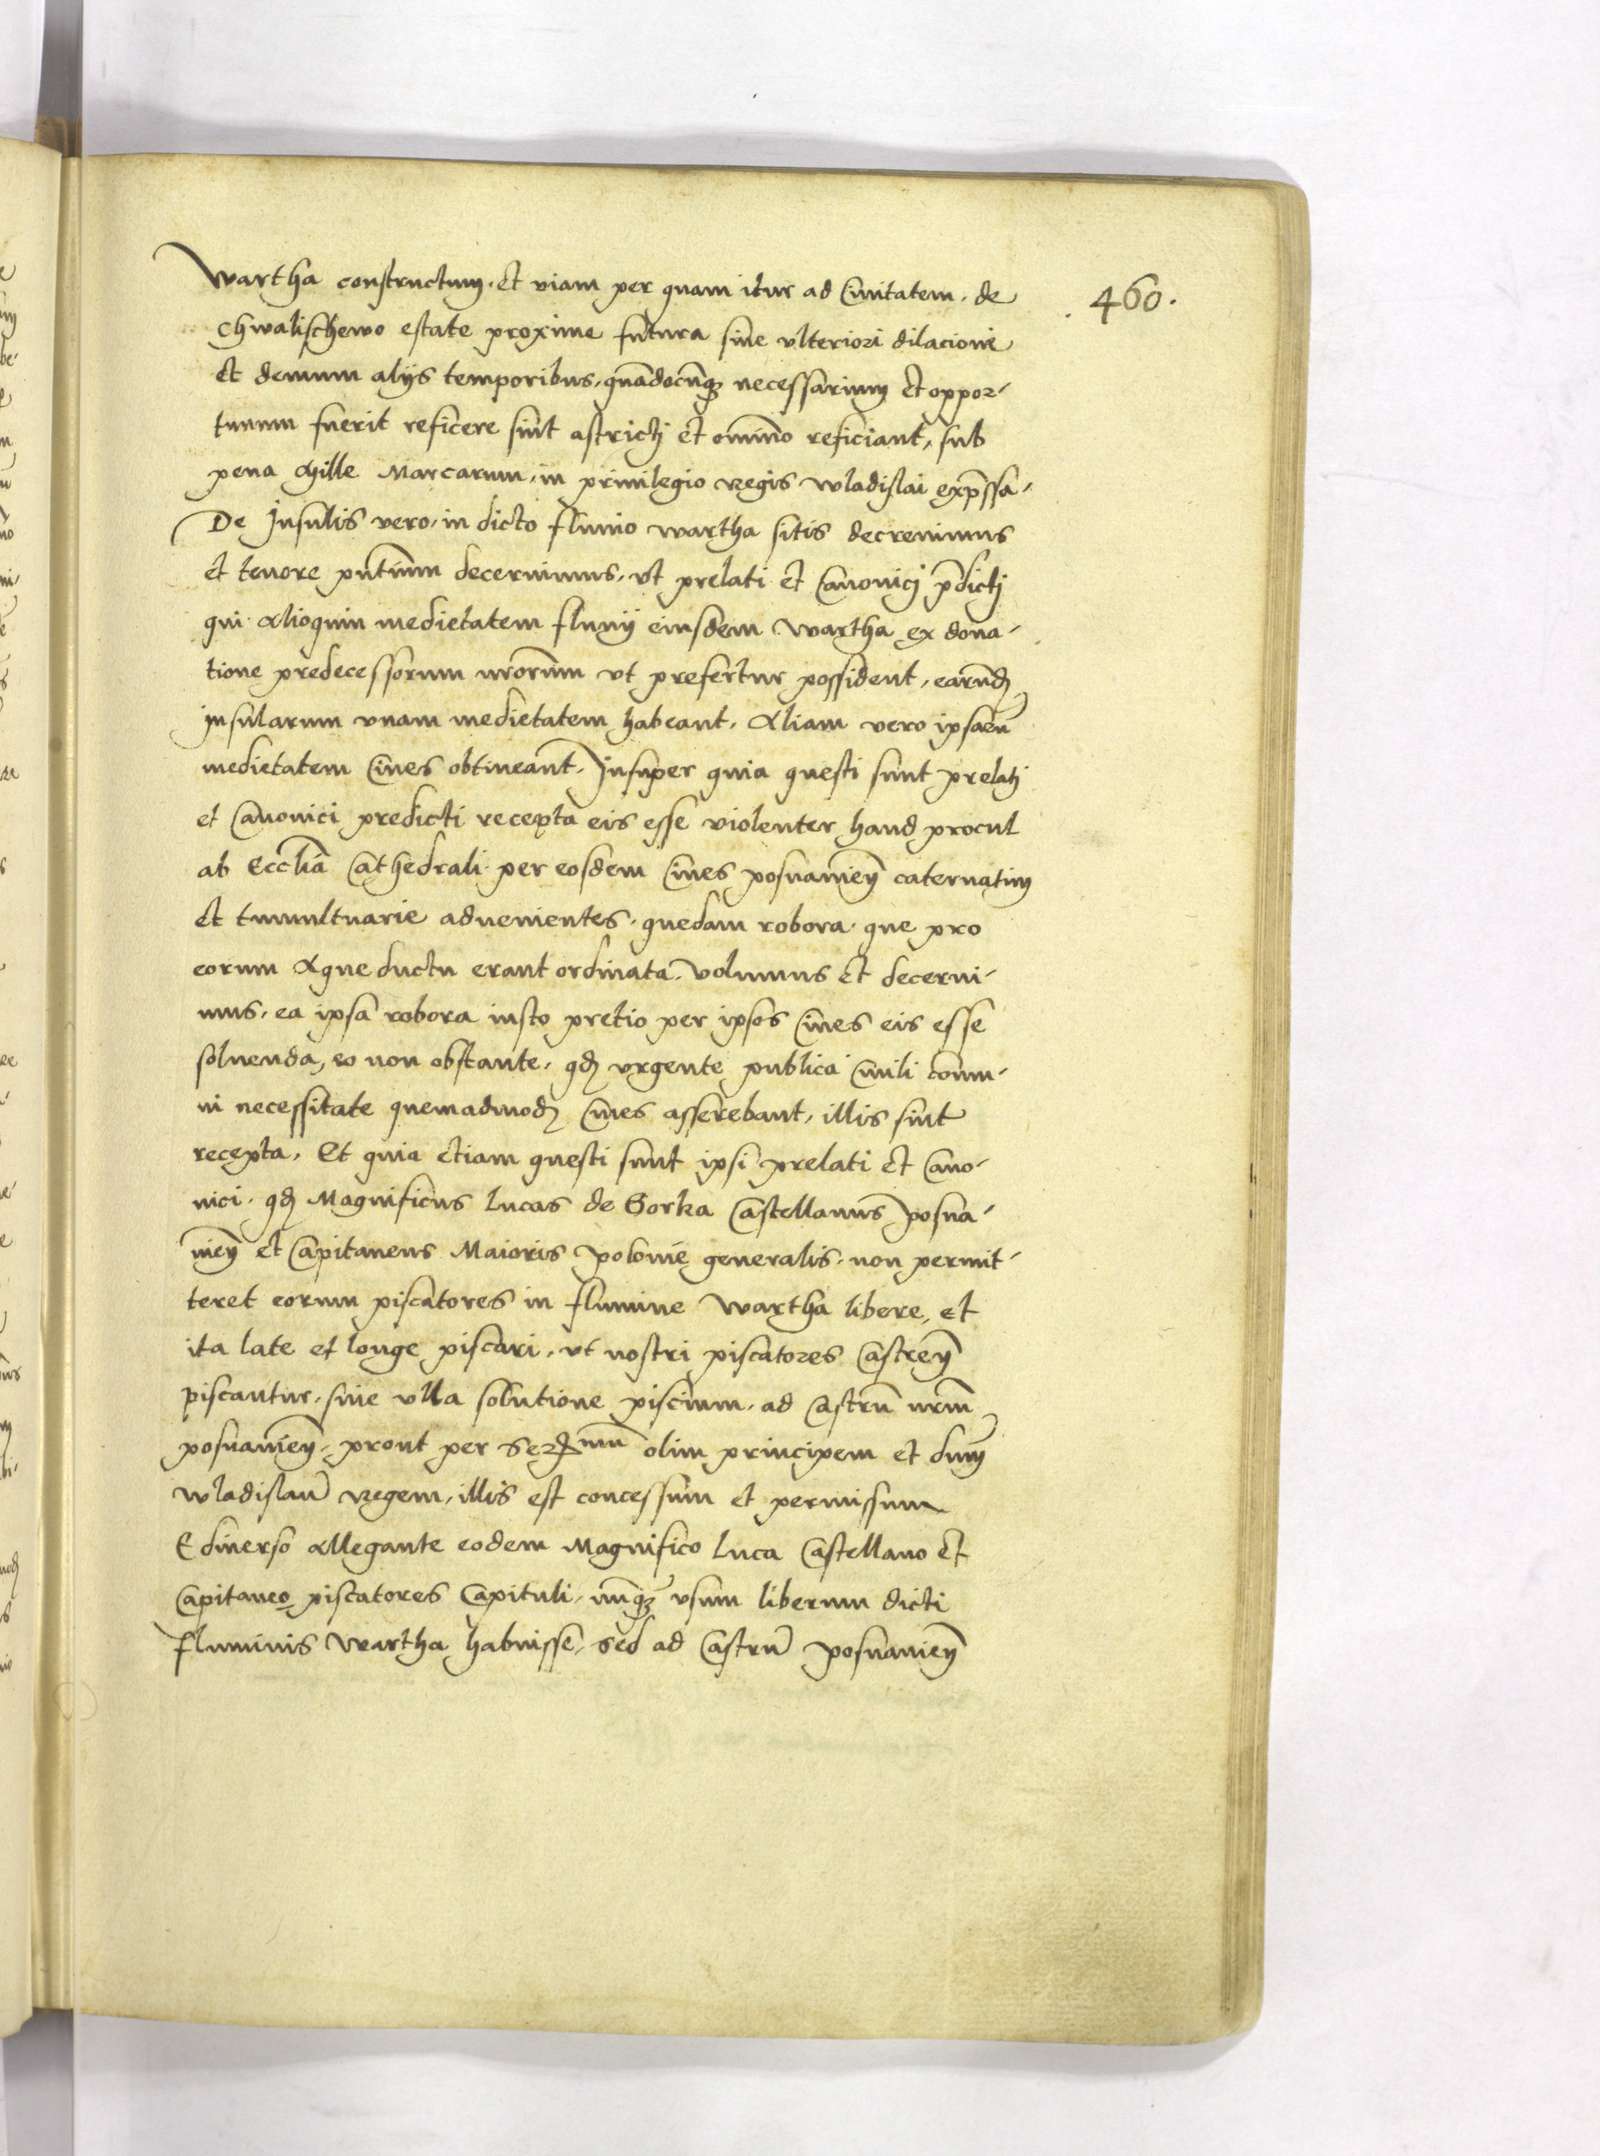 460.
Wartha constructum. et viam per quam itur ad Civitatem. de
Chwalischewo estate proxime futura sine vlteriori dilacione
Et demum alijs temporibus, quãdocũqȝ necessarium et oppor-
tunum fuerit reficere sint astricti et omĩno reficiant, sub
pena Mille Marcarum, in privilegio Regis Wladislai exp̃ssa.
De Insulis vero, in dicto fluvio Wartha sitis decrevimus
et tenore pñtium decernimus, vt prelati et Canonici p̃dicti
qui Alioquin medietatem fluvij eiusdem Wartha ex dona-
tione predecessorum nr̃orum vt prefertur possident, earũdẽ
Insularum vnam medietatem habeant. Aliam vero ipsarũ
medietatem Cives obtineant. Insuper quia questi sunt prelati
et Canonici predicti recepta eis esse violenter haud procul
ab Eccl̃ia Cathedrali per eosdem Cives posnanieñ catervatim
Et tumultuarie advenientes. quedam robora que pro
eorum Aque ductu erant ordinata. Volumus et decerni-
mus, ea ipsa robora iusto pretio per ipsos Cives eis esse
solvenda, eo non obstante. qđ vrgente publica Civili com̃u-
ni necessitate quemadmodũ Cives asserebant, illis sint
recepta. Et quia etiam questi sunt ipsi prelati et Cano-
nici. qđ Magnificus Lucas de Gorka Castellanus Posna-
nieñ et Capitaneus Maioris Polonie generalis. non permit-
teret eorum piscatores in flumine Wartha libere, et
ita late et longe piscari, vt nostri piscatores Castreñ
piscantur. sine vlla solutione piscium. ad Castrũ nr̃m
posnanieñ. prout per Ser.mũ olim principem et dñm
Wladislaũ Regem, illis est concessum et permissum
E diverso Allegante eodem Magnifico Luca Castellano et
Capitaneo piscatores Capituli. nũqȝ vsum liberum dicti
fluminis Wartha habuisse, sed ad Castrũ posnanieñ